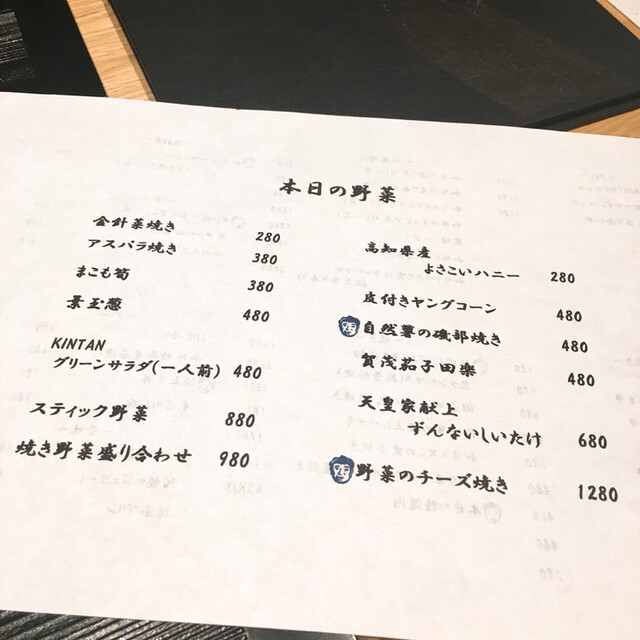 本日の野菜
金針菜焼き 280
アスパラ焼き 380
まこも筍 380
葉玉葱 480
KINTAN
グリーンサラダ(一人前) 480
スティック野菜 880
焼き野菜盛り合わせ 980
高知県産
よさこいハニー 280
皮付きヤングコーン 480
自然薯の磯部焼き 480
賀茂茄子田楽 480
天皇家献上
ずんないしいたけ 680
野菜のチーズ焼き 1280